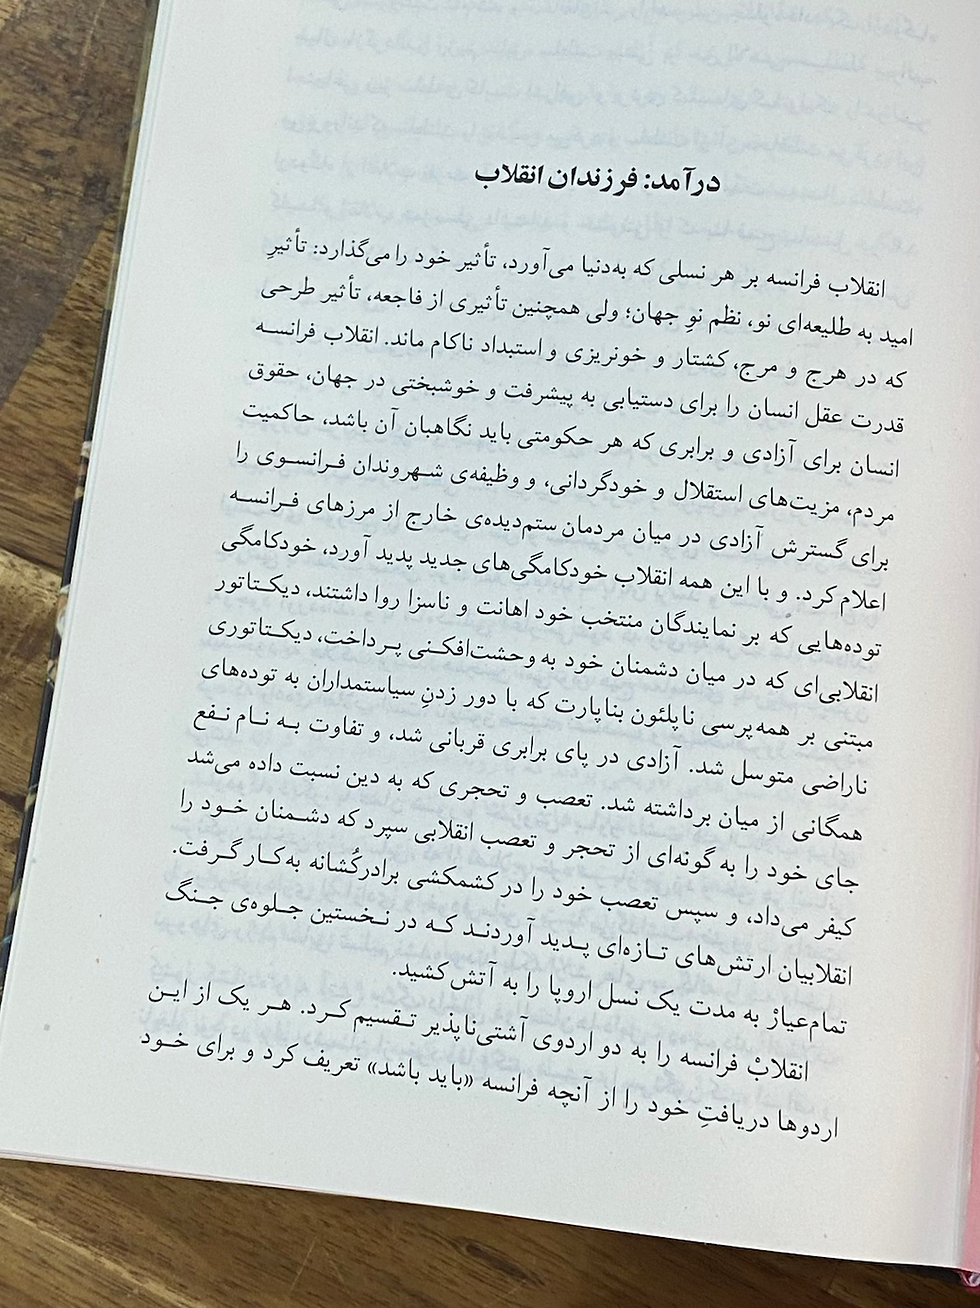 درآمد: فرزندان انقلاب
انقلاب فرانسه بر هر نسلی که به‌دنیا می‌آورد، تأثیر خود را می‌گذارد: تأثیرِ
امید به طلیعه‌ای نو، نظم نوِ جهان؛ ولی همچنین تأثیری از فاجعه، تأثیر طرحی
که در هرج و مرج، کشتار و خونریزی و استبداد ناکام ماند. انقلاب فرانسه
قدرت عقل انسان را برای دستیابی به پیشرفت و خوشبختی در جهان، حقوق
انسان برای آزادی و برابری که هر حکومتی باید نگاهبان آن باشد، حاکمیت
مردم، مزیت‌های استقلال و خودگردانی، و وظیفه‌ی شهروندان فرانسوی را
برای گسترش آزادی در میان مردمان ستم‌دیده‌ی خارج از مرزهای فرانسه
اعلام کرد. و با این همه انقلاب خودکامگی‌های جدید پدید آورد، خودکامگی
توده‌هایی که بر نمایندگان منتخب خود اهانت و ناسزا روا داشتند، دیکتاتور
انقلابی‌ای که در میان دشمنان خود به وحشت‌افکنی پرداخت، دیکتاتوری
مبتنی بر همه‌پرسی ناپلئون بناپارت که با دور زدنِ سیاستمداران به توده‌های
ناراضی متوسل شد. آزادی در پای برابری قربانی شد، و تفاوت به نام نفع
همگانی از میان برداشته شد. تعصب و تحجری که به دین نسبت داده می‌شد
جای خود را به گونه‌ای از تحجر و تعصب انقلابی سپرد که دشمنان خود را
کیفر می‌داد، و سپس تعصب خود را در کشمکشی برادرکُشانه به‌کار گرفت.
انقلابیان ارتش‌های تازه‌ای پدید آوردند که در نخستین جلوه‌ی جنگ
تمام‌عیارْ به مدت یک نسل اروپا را به آتش کشید.
انقلابْ فرانسه را به دو اردوی آشتی‌ناپذیر تقسیم کرد. هر یک از این
اردوها دریافتِ خود را از آنچه فرانسه «باید باشد» تعریف کرد و برای خود